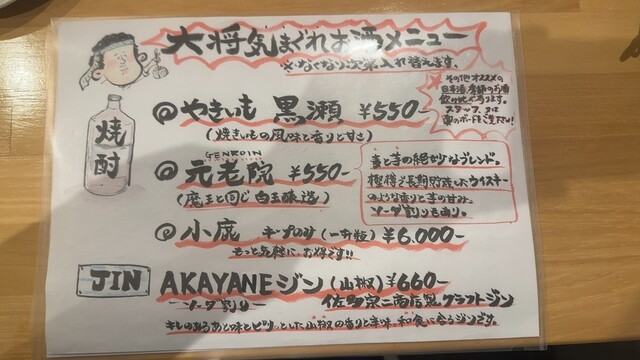 大将気まぐれお酒メニュー
※なくなり次第入れ替えます。
その他オススメの
日本酒 季節のお酒
飲み比べ有ります。
スタッフ 又は
焼酎
@やきいも 黒瀬 ¥550-
(焼きいもの風味と香りと甘さ)
GENROIN
@元老院 ¥550-
(魔王と同じ白玉醸造)
麦と芋の絶妙なブレンド。
樫樽で長期貯蔵したウイスキー
のような香りと芋の甘み。
ソーダ割りもあり。
@小鹿 キープのみ(一升瓶) ¥6.000-
もっと気軽に、お得です!!
JIN AKAYANEジン(山椒) ¥660-
ーソーダ割りー 佐多宗二商店製クラフトジン
キレのあるあと味とピリッとした山椒の香りと辛味。和食に合うジンです。